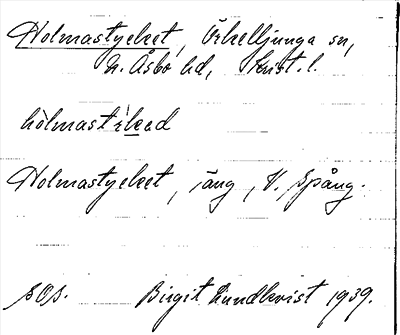 Holmastycket, Örkelljunga sn,
N. Åsbo hd, Krist. l.
Holmastycket, äng, V. Spång.
SOS. Birgit Lundkvist 1939.